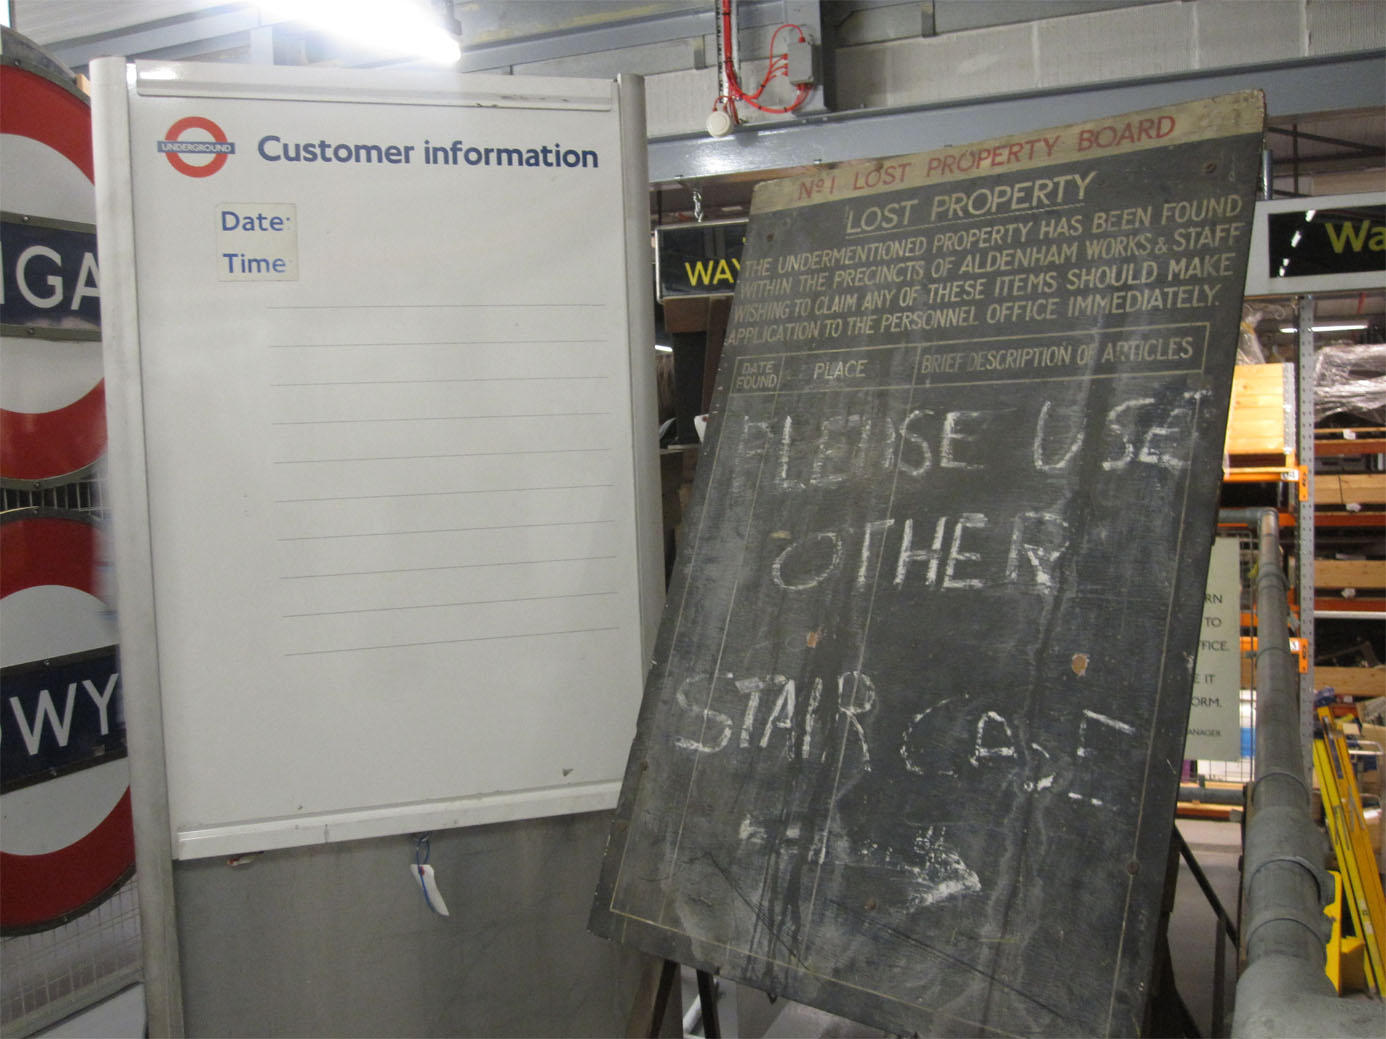 UNDERGROUND
Customer information
Date:
Time
IGA
WY
Nº1 LOST PROPERTY BOARD
LOST PROPERTY
THE UNDERMENTIONED PROPERTY HAS BEEN FOUND
WITHIN THE PRECINCTS OF ALDENHAM WORKS & STAFF
WISHING TO CLAIM ANY OF THESE ITEMS SHOULD MAKE
APPLICATION TO THE PERSONNEL OFFICE IMMEDIATELY.
DATE FOUND PLACE BRIEF DESCRIPTION OF ARTICLES
PLEASE USE
OTHER
STAIR CASE
WAY
Wa
RN
TO
FICE.
E IT
ORM.
MANAGER